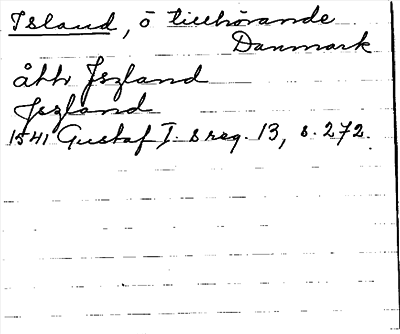 Island, ö tillhörande
Danmark
åth Jszland
Jszland
1541 Gustaf I. s reg. 13, s. 272.